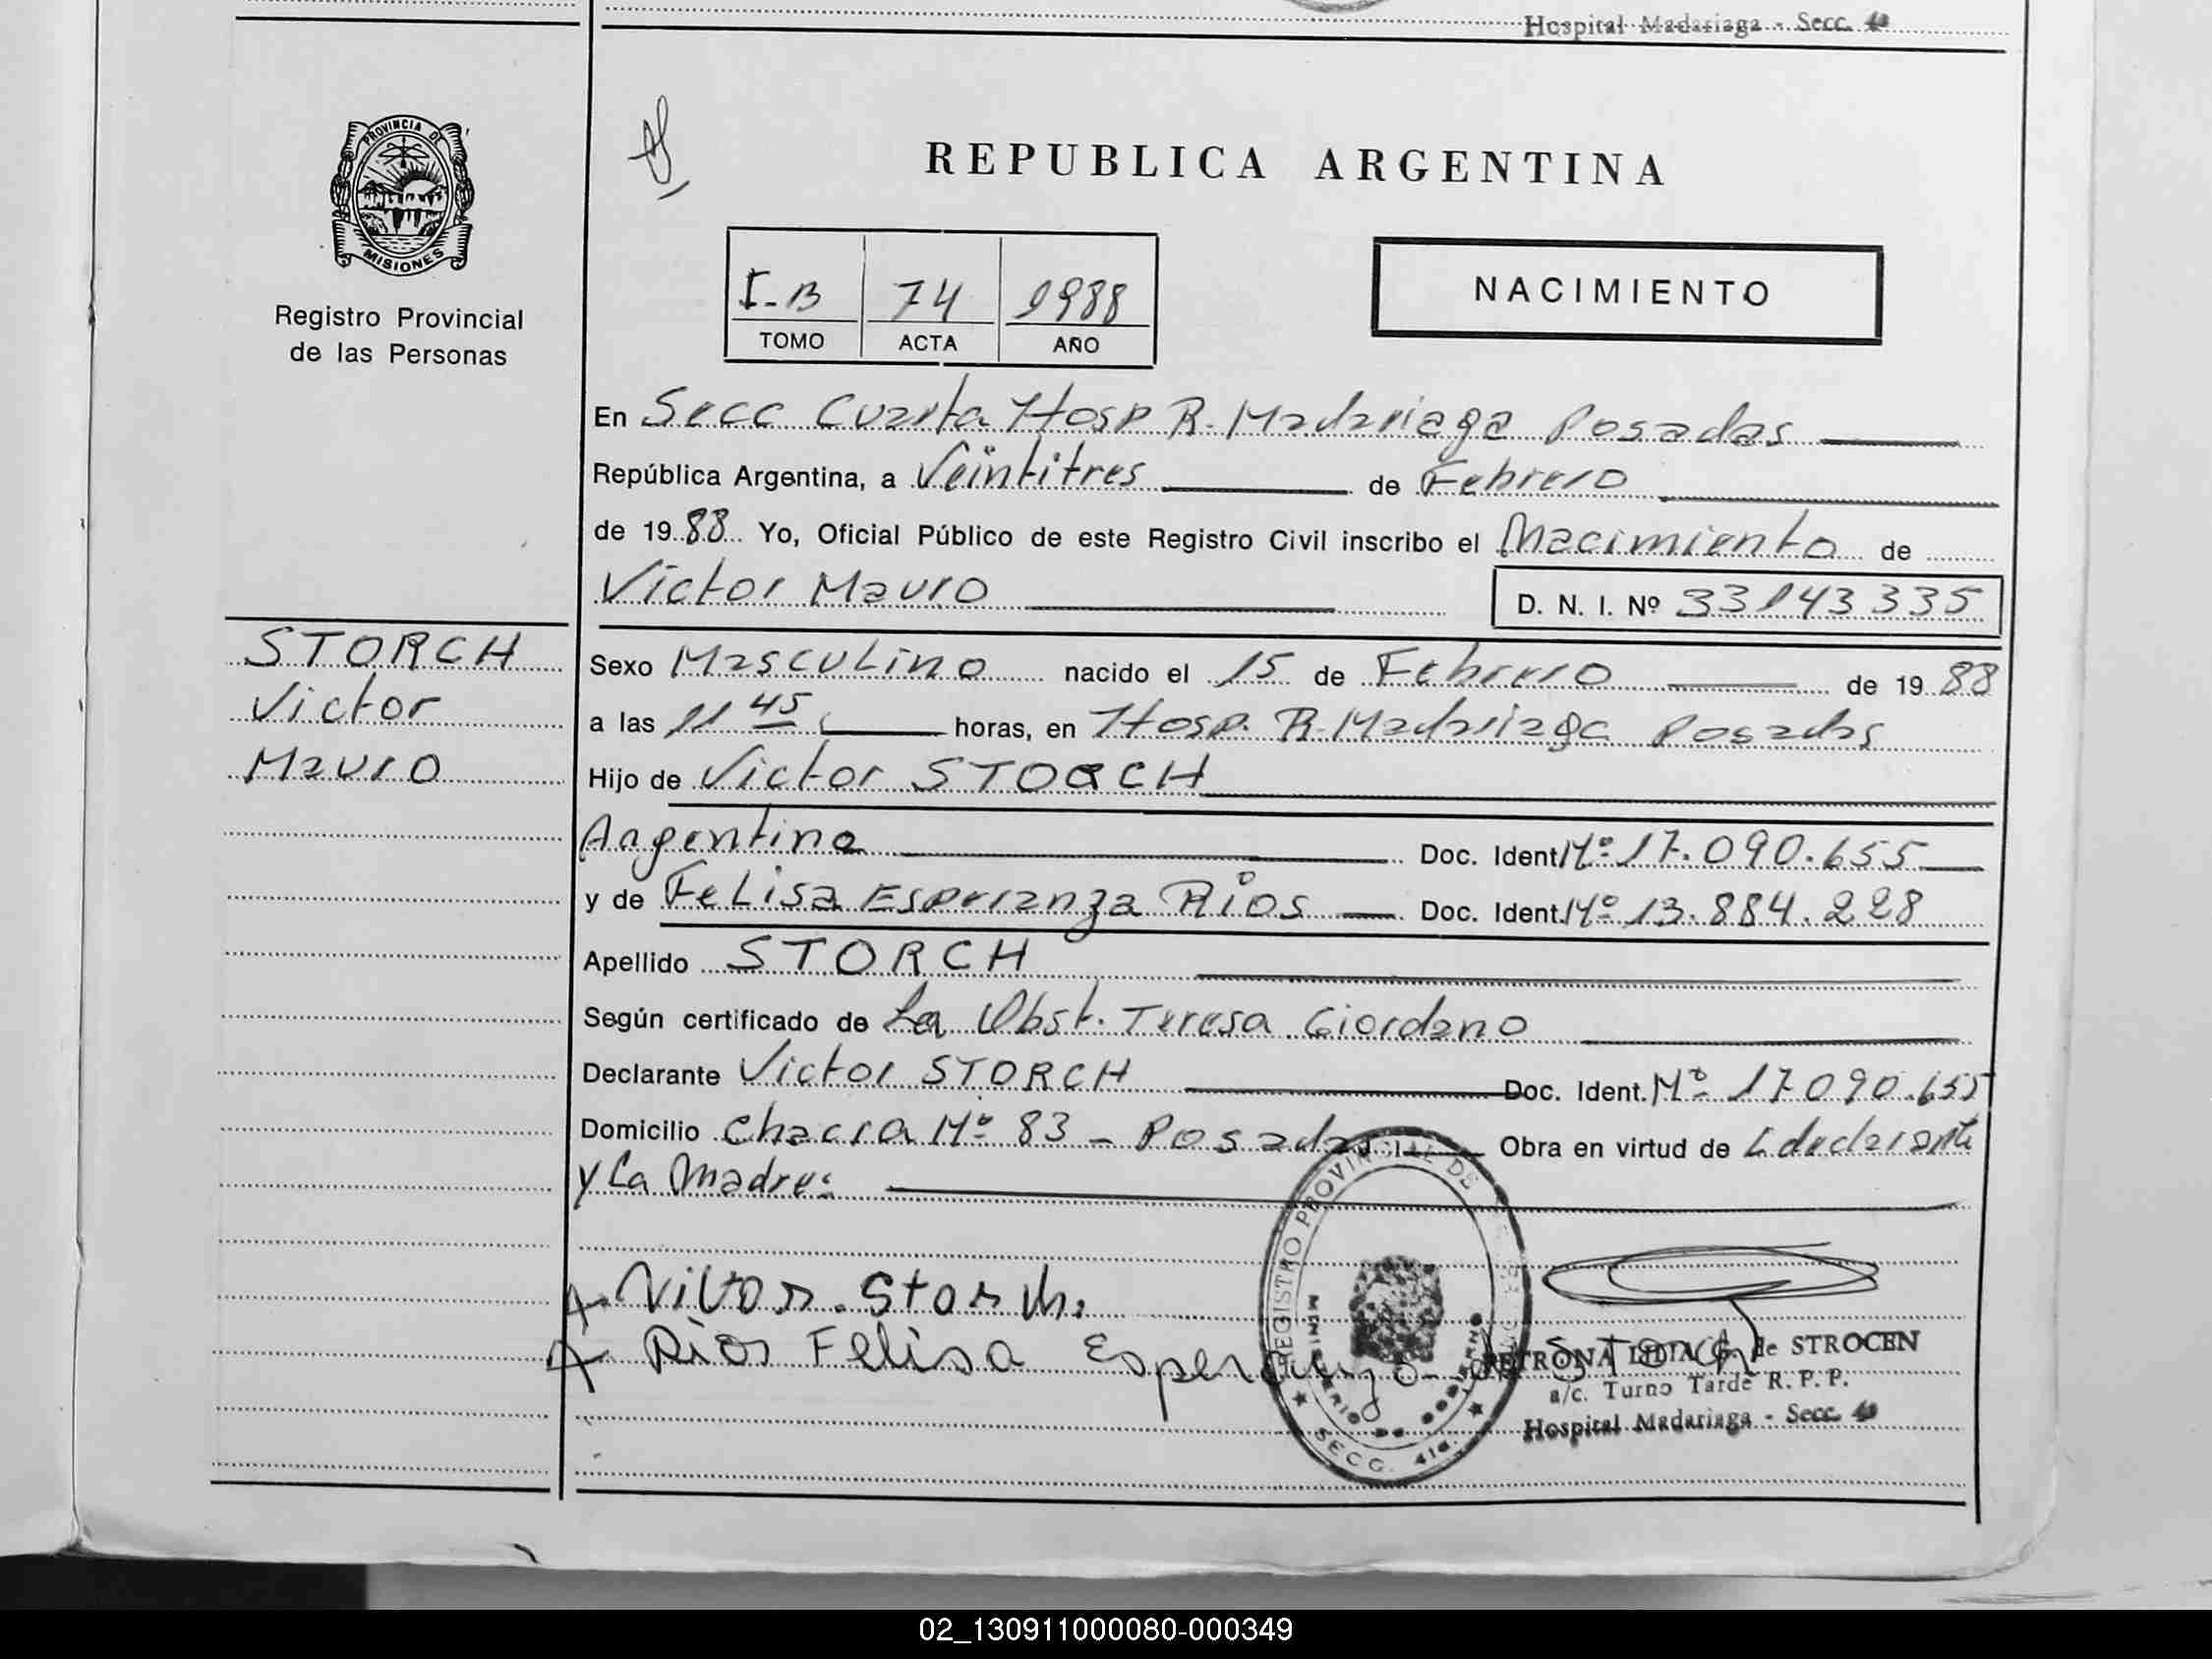 Hospital Madariaga - Secc. 4a
PROVINCIA DE
MISIONES
Registro Provincial
de las Personas
REPUBLICA ARGENTINA
I-B 74 1988
TOMO ACTA AÑO
NACIMIENTO
En Secc Cuarta Hosp R. Madariaga Posadas
República Argentina, a Veintitres de Febrero
de 19 88 Yo, Oficial Público de este Registro Civil inscribo el Nacimiento de
Victor Mauro D. N. I. Nº 33143335
STORCH
Victor
Mauro
Sexo Masculino nacido el 15 de Febrero de 19 88
a las 11 45 horas, en Hosp. R. Madariaga Posadas
Hijo de Victor STORCH
Argentino Doc. Ident Nº 17.090.655
y de Felisa Esperanza Rios Doc. Ident. Nº 13.884.228
Apellido STORCH
Según certificado de La Obst. Teresa Giordano
Declarante Victor STORCH Doc. Ident. Nº 17090.655
Domicilio Chacra Nº 83 - Posadas Obra en virtud de L declarante
y La Madre:
Vitor. Storch.
Rios Felisa Esperanza de Storch
REGISTRO PROVINCIAL DE
MINISTERIO DE GOBIERNO
SECC. 4ta.
PETRONA LIDIA G. de STROCEN
a/c. Turno Tarde R. P. P.
Hospital Madariaga - Secc. 4a
02_130911000080-000349